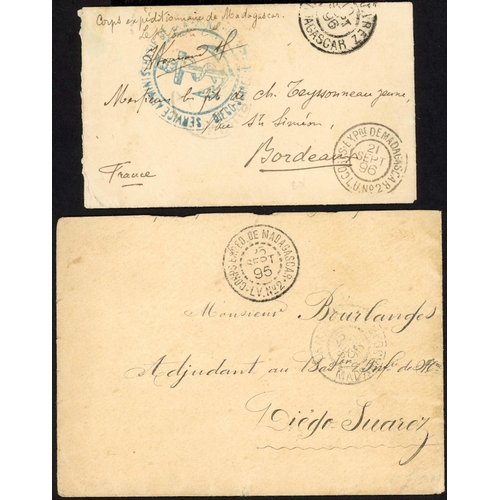 Corps expéditionnaire de Madagascar.
Le
Monsieur les fils de Ch. Teyssonneau jeune,
rue St Siméon,
Bordeaux
France
SERVICE
CORPS EXPRE DE MADAGASCAR
21
SEPT
96
CORPS EXPED. DE MADAGASCAR
SEPT
95
Monsieur Bourlanges
Adjudant au Baton Infie de Mne
Diégo Suarez